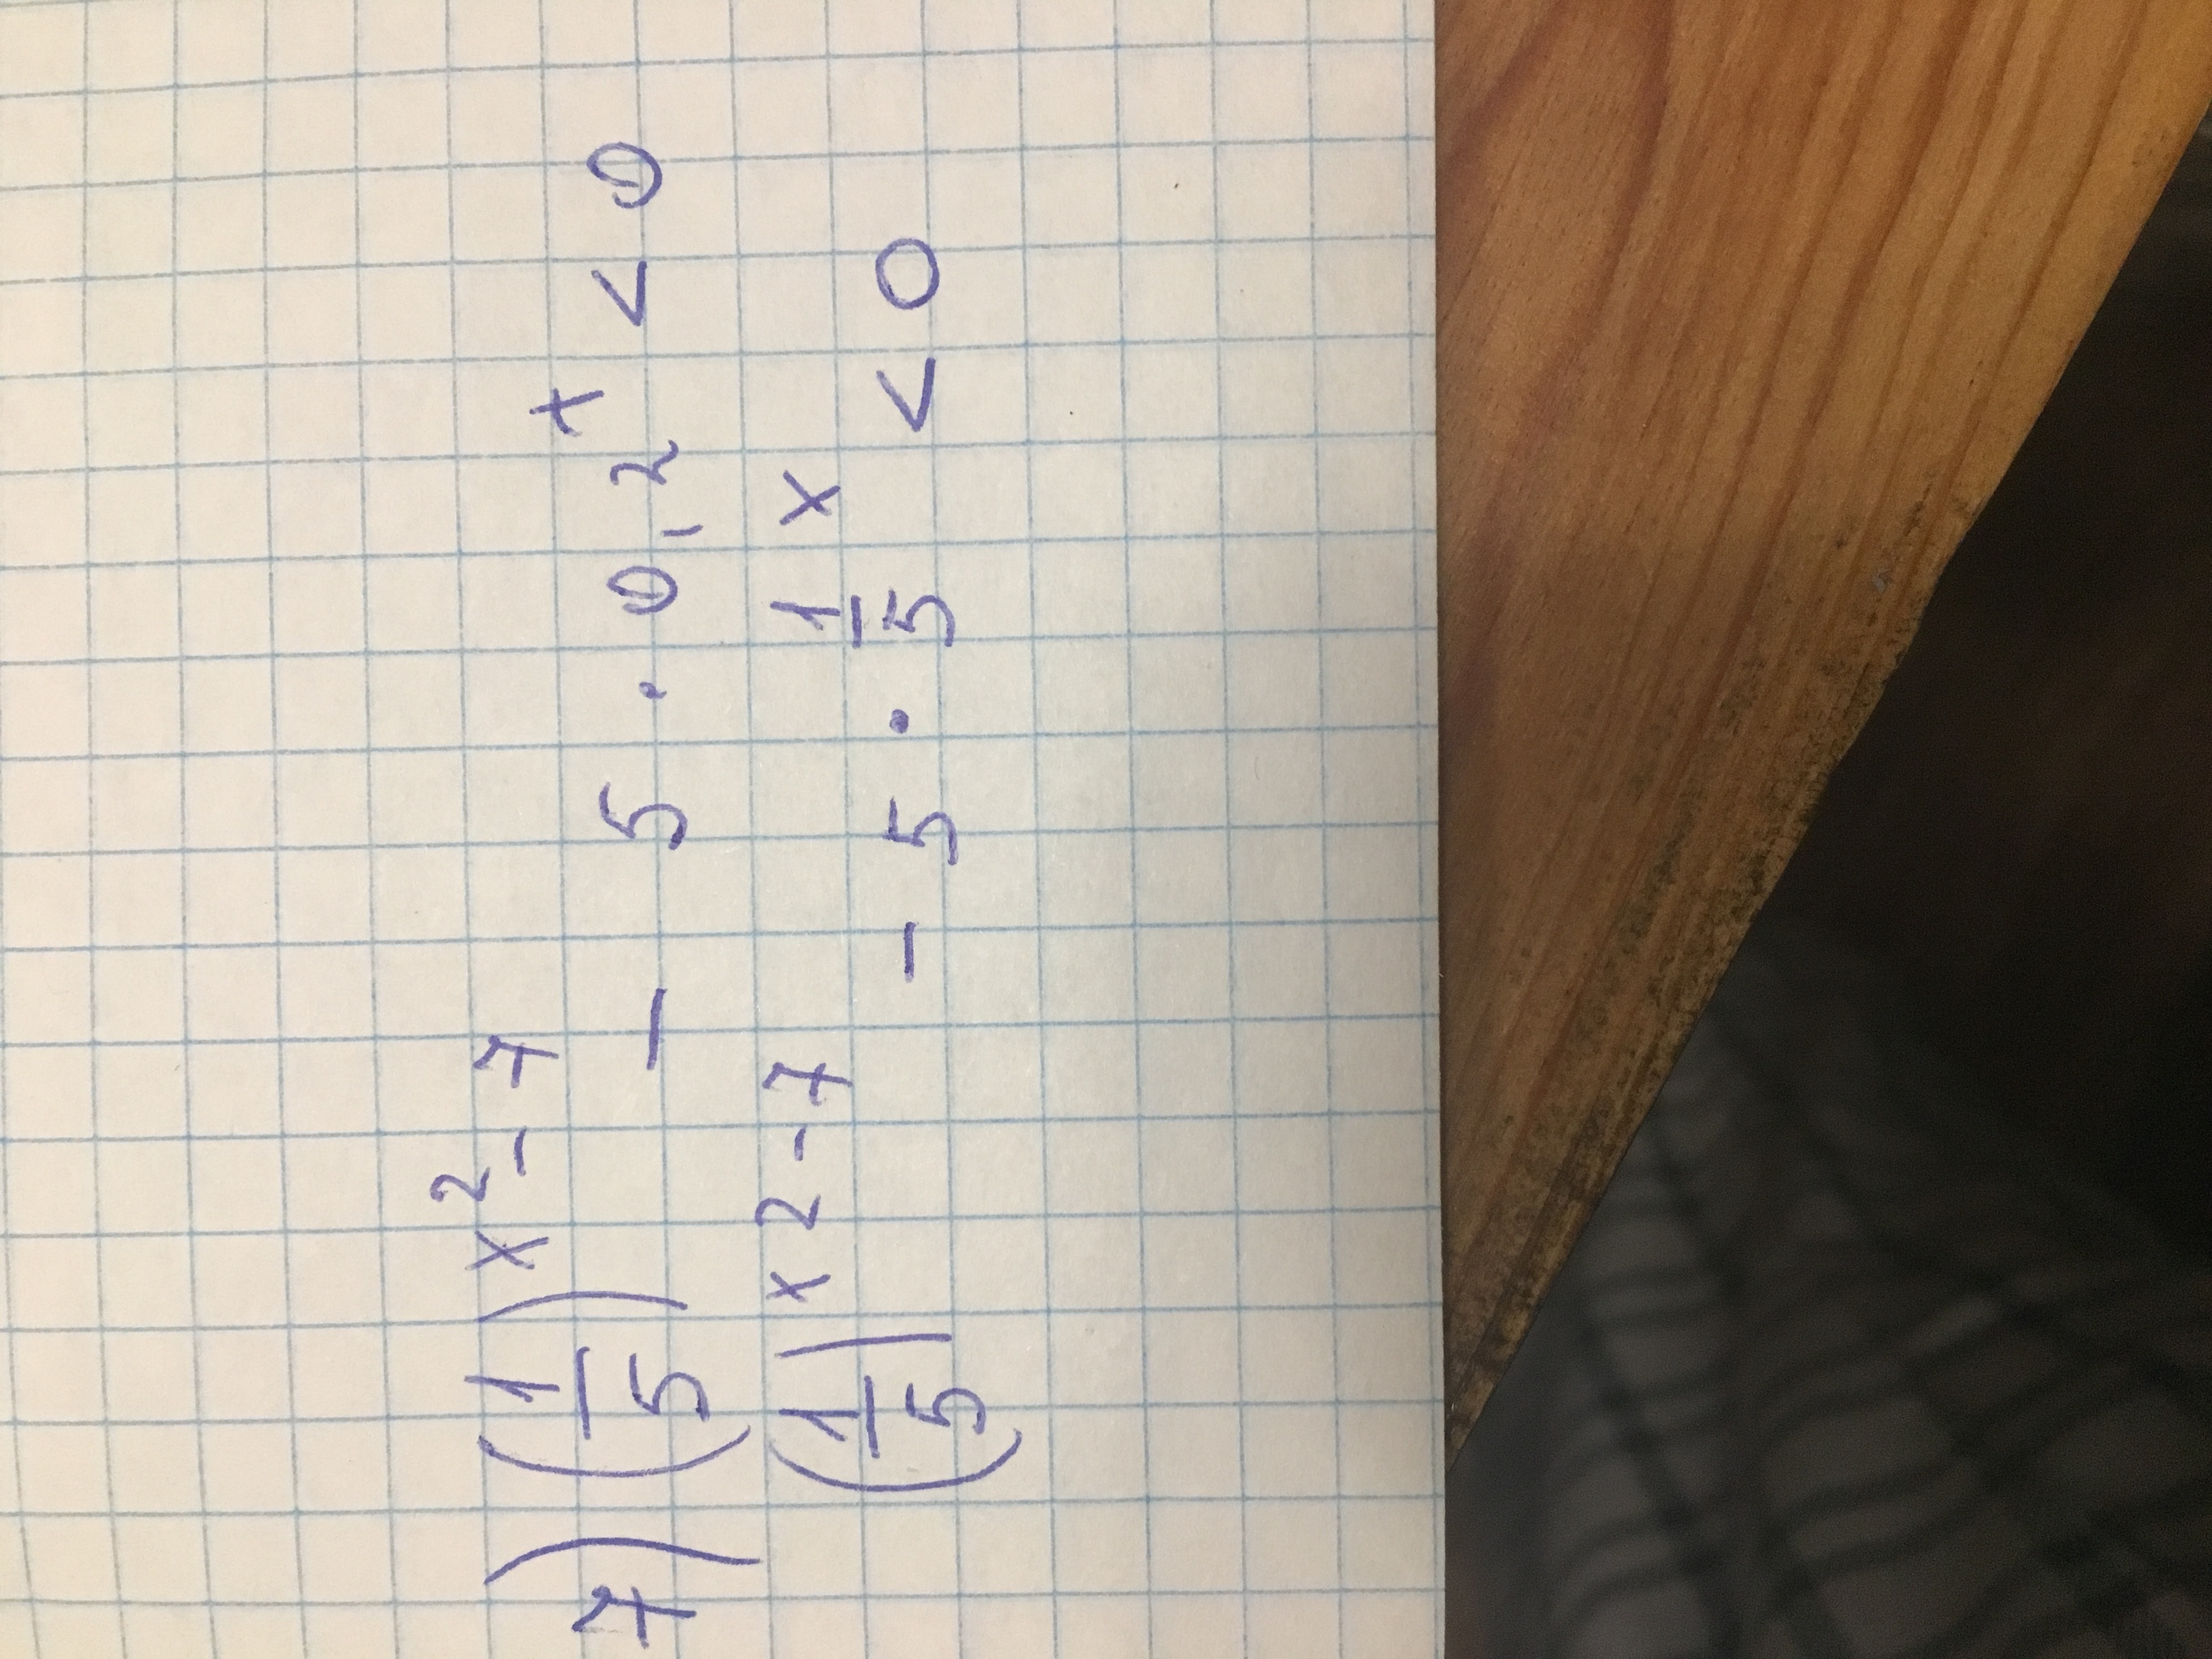 7) (1/5)^x²-7 - 5 · 0,2^x < 0
(1/5)^x2-7 - 5 · 1/5^x < 0